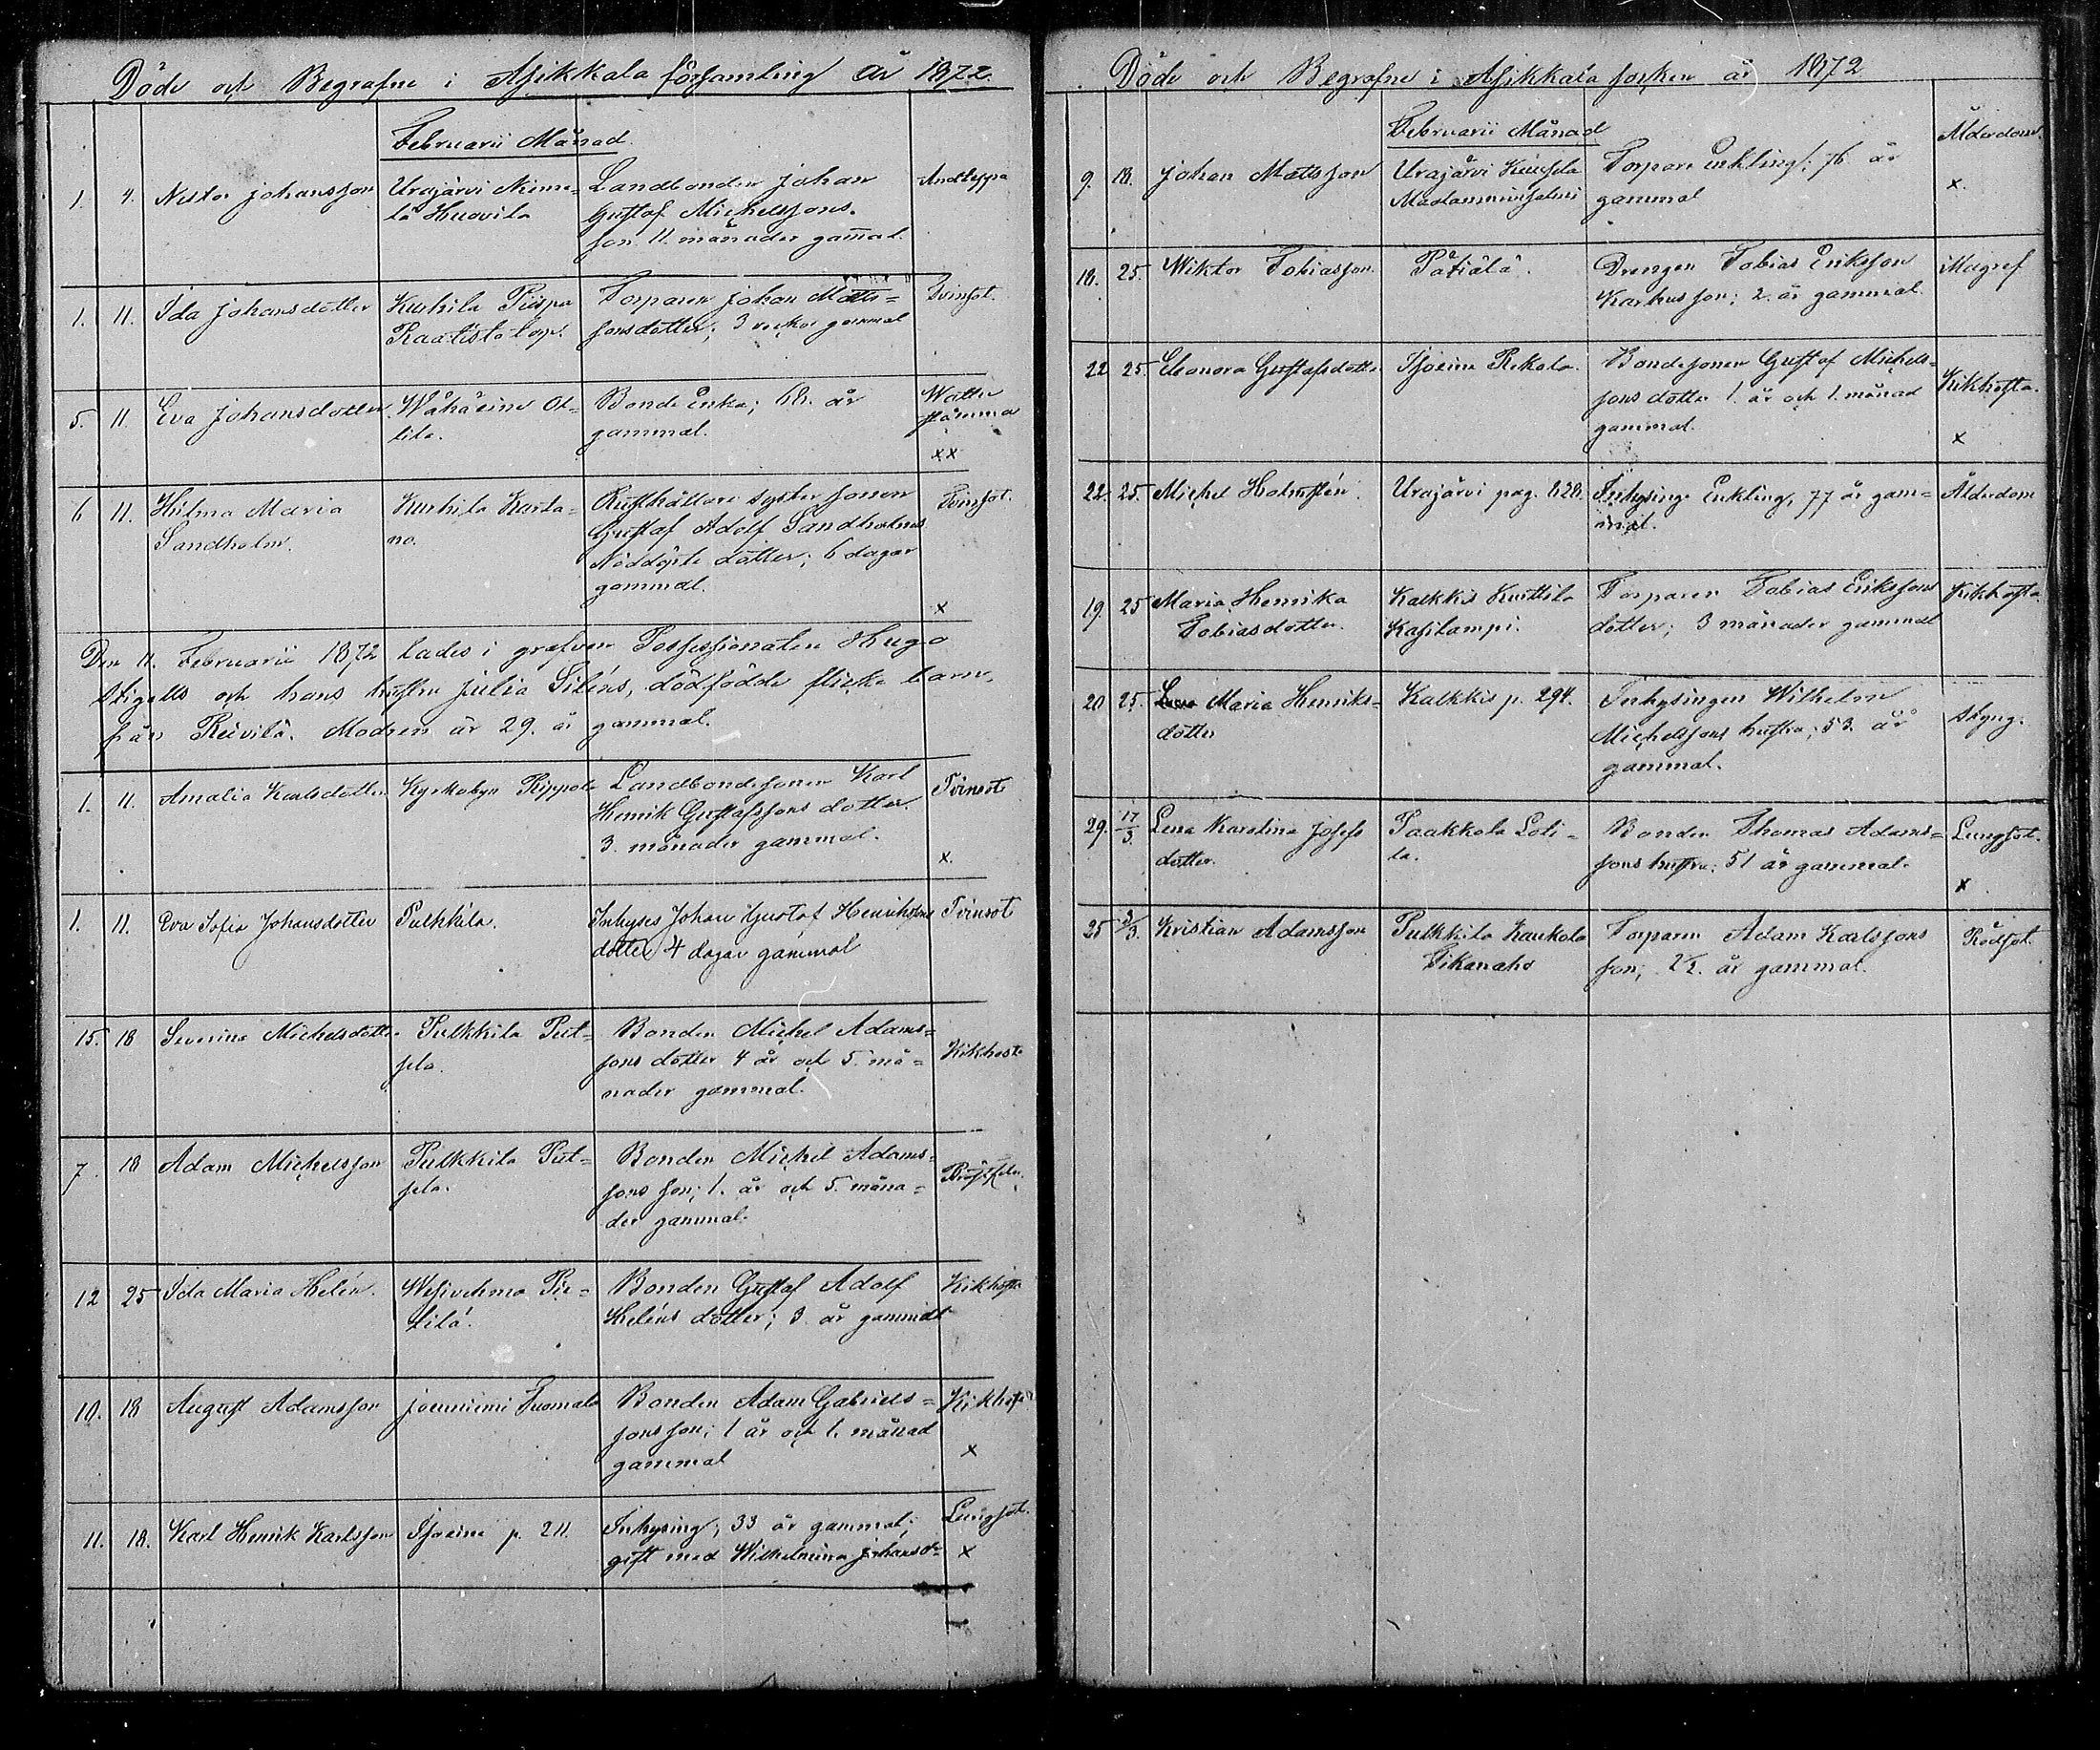 Döde och Begrafne i Asikkala församling år 1872.
Februarii Månad.
1. 4. Nestor Johansson Urajärvi Nieme- Landbonden Johan Andtäppa
lä Huovila Gustaf Michelssons
son. 11. månader gammal.
1. 11. Ida Johansdotter Kurhila Torparen Johan Matts= Tvinsot.
torp. sons dotter; 3 veckor gammal
5. 11. Eva Johansdotter Wähäeine Ol- Bonde Enka; 68. år Watten
lila. gammal.
xx
6 11. Hilma Maria Kurhila Karta= Rusthållare syster sonen Tvinsot.
Sandholm. no. Gustaf Adolf Sandholms
Nöddöpte dotter; 6 dagar
gammal.
x
Den 11. Februarii 1872 lades i grafven Possessionaten Hugo
Stigells och hans hustru Julia Siléns, dödfödde flicke barn,
från Reivilä. Modren är 29. år gammal.
1. 11. Amalia Karlsdotter Kyrkobyn Landbondesonen Karl Tvinsot
Henrik Gustafssons dotter.
3. månader gammal. x.
1. 11. Eva Sofia Johansdotter Pulkkila. Inhyses Johan Gustaf Henrikssons Tvinsot
dotter 4 dagar gammal
15. 18 Severina Michelsdotter Pulkkila Put= Bonden Michel Adams= Kikhosta
sela. sons dotter 4 år och 5. må=
nader gammal.
7. 18 Adam Michelsson Pulkkila Put= Bonden Michel Adams=
sela. sons son; 1. år och 5. måna=
der gammal.
12 25 Ida Maria Helén. Wesivehma Pie= Bonden Gustaf Adolf Kikhosta
tilä. Heléns dotter; 3. år gammal
10. 18 August Adamsson Jouniemi Tuomala Bonden Adam Gabriels= Kikhosta
sons son; 1 år och 1. månad x
gammal
11. 18. Karl Henrik Karlsson Isoeine p. 211. Inhysing; 33 år gammal; Lungsot.
gift med Wilhelmina Johansdr x
Döde och Begrafne i Asikkala socken år 1872
Februarii Månad
9. 18. Johan Mattsson Urajärvi Torpare Enkling; 76 år Ålderdom.
gammal x.
18. 25. Wiktor Tobiasson. Pätiälä. Drengen Tobias Eriksson Magref
Karhus son; 2. år gammal.
22 25. Eleonora Gustafsdotter Isoeine Rekola. Bondesonen Gustaf Michels= Kikhosta.
sons dotter 1. år och 1. månad
gammal. x
22. 25. Michel Holmstén. Urajärvi pag. 828. Inhysinge Enkling, 77 år gam= Ålderdom
mal.
19. 25 Maria Henrika Kalkkis Kurttila Torparen Tobias Erikssons Kikhosta.
Tobiasdotter. Kasilampi. dotter; 3 månader gammal
20 25. Maria Henriks= Kalkkis p. 294. Inhysingen Wilhelm Styng.
dotter Michelssons hustru; 53. år
gammal.
29. 17/3. Lena Karolina Josefs Paakkola Loti= Bonden Thomas Adams= Lungsot.
dotter. la. sons hustru; 51 år gammal. x
25 3/3. Kristian Adamsson Pulkkila Kaukola Torparen Adam Karlssons Rödsot.
Sikanaho son; 2½. år gammal.